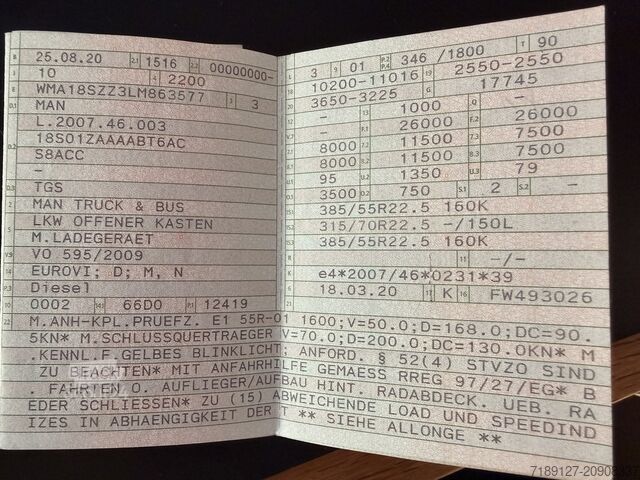 B 25.08.20 2.1 1516 2.2 00000000-
J 10 4 2200
E WMA18SZZ3LM863577 3 3
D.1 MAN
L.2007.46.003
D.2 18S01ZAAAABT6AC
S8ACC
-
D.3 TGS
2 MAN TRUCK & BUS
5 LKW OFFENER KASTEN
M.LADEGERAET
V.9 VO 595/2009
14 EUROVI; D; M, N
P.3 Diesel
10 0002 14.1 66D0 P.1 12419
L 3 9 01 P.2 P.4 346 /1800 T 90
18 10200-11016 19 2550-2550
20 3650-3225 G 17745
12 - 13 1000 Q -
V.7 - F.1 26000 F.2 26000
7.1 8000 7.2 11500 7.3 7500
8.1 8000 8.2 11500 8.3 7500
U.1 95 U.2 1350 U.3 79
O.1 3500 O.2 750 S.1 2 S.2 -
15.1 385/55R22.5 160K
15.2 315/70R22.5 -/150L
15.3 385/55R22.5 160K
R -/-
K e4*2007/46*0231*39
6 18.03.20 17 K 16 FW493026
21
22 M.ANH-KPL.PRUEFZ. E1 55R-01 1600;V=50.0;D=168.0;DC=90.
5KN* M.SCHLUSSQUERTRAEGER V=70.0;D=200.0;DC=130.0KN* M
.KENNL.F.GELBES BLINKLICHT; ANFORD. § 52(4) STVZO SIND
ZU BEACHTEN* MIT ANFAHRHILFE GEMAESS RREG 97/27/EG* B
. FAHRTEN O. AUFLIEGER/AUFBAU HINT. RADABDECK. UEB. RA
EDER SCHLIESSEN* ZU (15) ABWEICHENDE LOAD UND SPEEDIND
IZES IN ABHAENGIGKEIT DER T ** SIEHE ALLONGE **